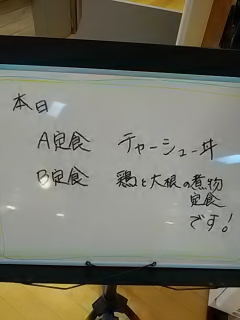 本日
A定食 チャーシュー丼
B定食 鶏と大根の煮物
定食
です!